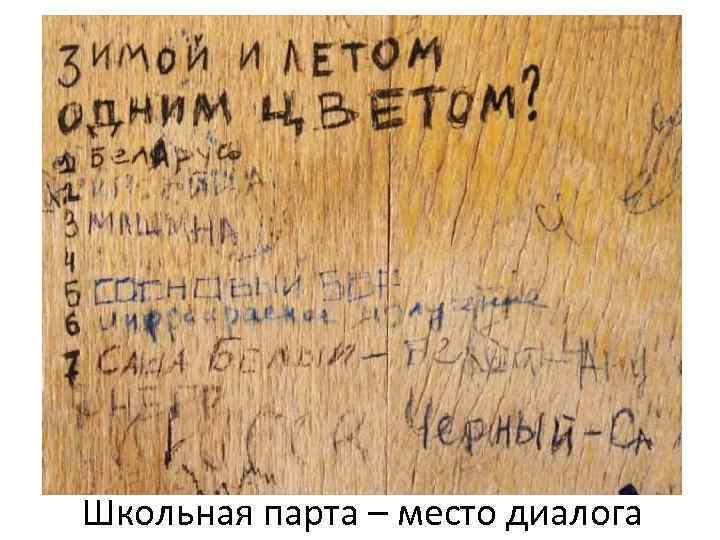 ЗИМОЙ И ЛЕТОМ
ОДНИМ ЦВЕТОМ?
1 БЕЛАРУСЬ
2
3 МАШИНА
4
5 СОСНОВЫЙ БОР
6 инфракрасное излучение
7 САША БЕЛЫЙ –
НЕГР
ЧЕРНЫЙ – СА
Школьная парта – место диалога